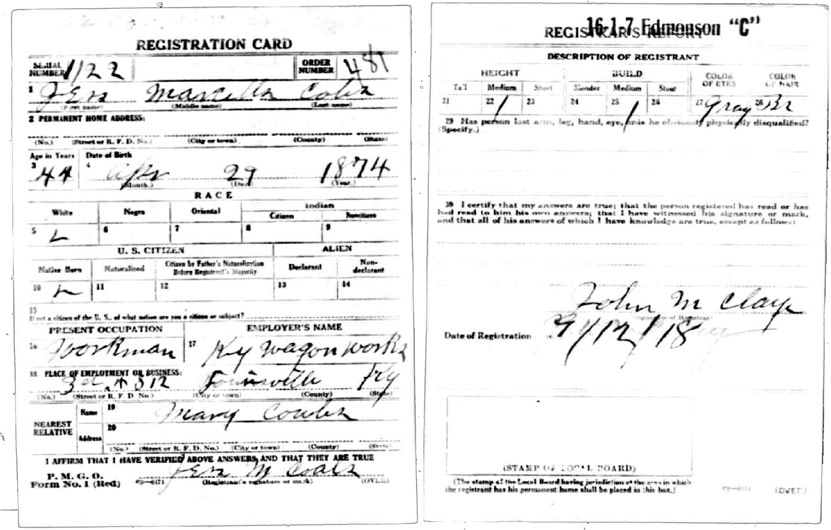 REGISTRATION CARD
SERIAL NUMBER 1122
ORDER NUMBER 481
1 Jess Marcellis
(First name) (Middle name) (Last name)
2 PERMANENT HOME ADDRESS:
(No.) (Street or R. F. D. No.) (City or town) (County) (State)
Age in Years Date of Birth
3 44 4 Apr 29 1874
(Month.) (Day.) (Year.)
RACE
White Negro Oriental Indian
Citizen Noncitizen
5 6 7 8 9
U. S. CITIZEN ALIEN
Native Born Naturalized Citizen by Father's Naturalization Before Registrant's Majority Declarant Non-declarant
10 11 12 13 14
15
If not a citizen of the U. S., of what nation are you a citizen or subject?
PRESENT OCCUPATION EMPLOYER'S NAME
16 Workman 17 Ky Wagon Works
18 PLACE OF EMPLOYMENT OR BUSINESS:
3rd Louisville Ky
(No.) (Street or R. F. D. No.) (City or town) (County) (State)
NEAREST RELATIVE
Name 19 Mary
Address 20
(No.) (Street or R. F. D. No.) (City or town) (County) (State)
I AFFIRM THAT I HAVE VERIFIED ABOVE ANSWERS AND THAT THEY ARE TRUE
P. M. G. O.
Form No. 1 (Red) Jess M
(Registrant's signature or mark) (OVER)
16-1-7 Edmonson "C"
REGISTRAR'S REPORT
DESCRIPTION OF REGISTRANT
HEIGHT BUILD COLOR OF EYES COLOR OF HAIR
Tall Medium Short Slender Medium Stout
21 22 / 23 24 25 / 26 27 Gray 28 Br
29 Has person lost arm, leg, hand, eye, or is he obviously physically disqualified?
(Specify.)
30 I certify that my answers are true; that the person registered has read or has
had read to him his own answers; that I have witnessed his signature or mark,
and that all of his answers of which I have knowledge are true, except as follows:
John M
Date of Registration 9/12/18
(STAMP OF LOCAL BOARD)
(The stamp of the Local Board having jurisdiction of the area in which
the registrant has his permanent home shall be placed in this box.)
(OVER)